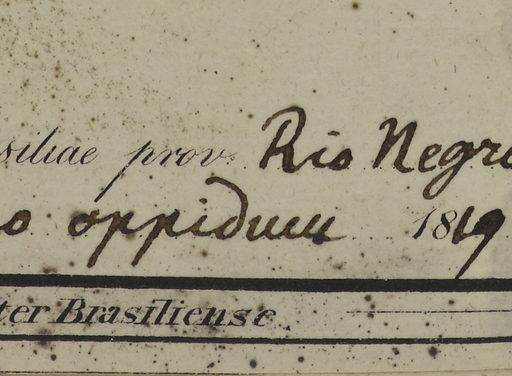 siliae prov. Rio Negro
o oppidum 1819
ter Brasiliense.